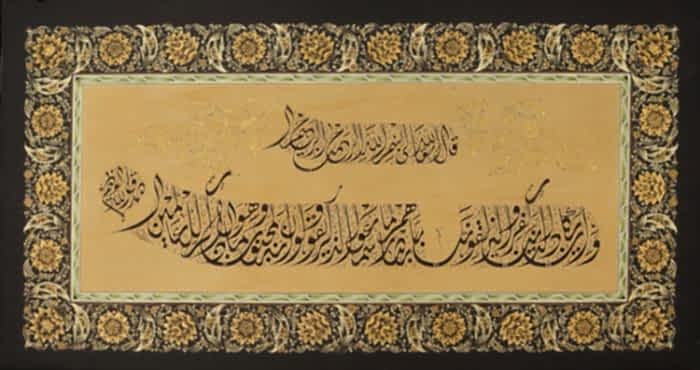 قال الله تعالى بسم الله الرحمن الرحيم
وان يكاد الذين كفروا ليزلقونك بابصارهم لما سمعوا الذكر ويقولون انه لمجنون وما هو الا ذكر للعالمين